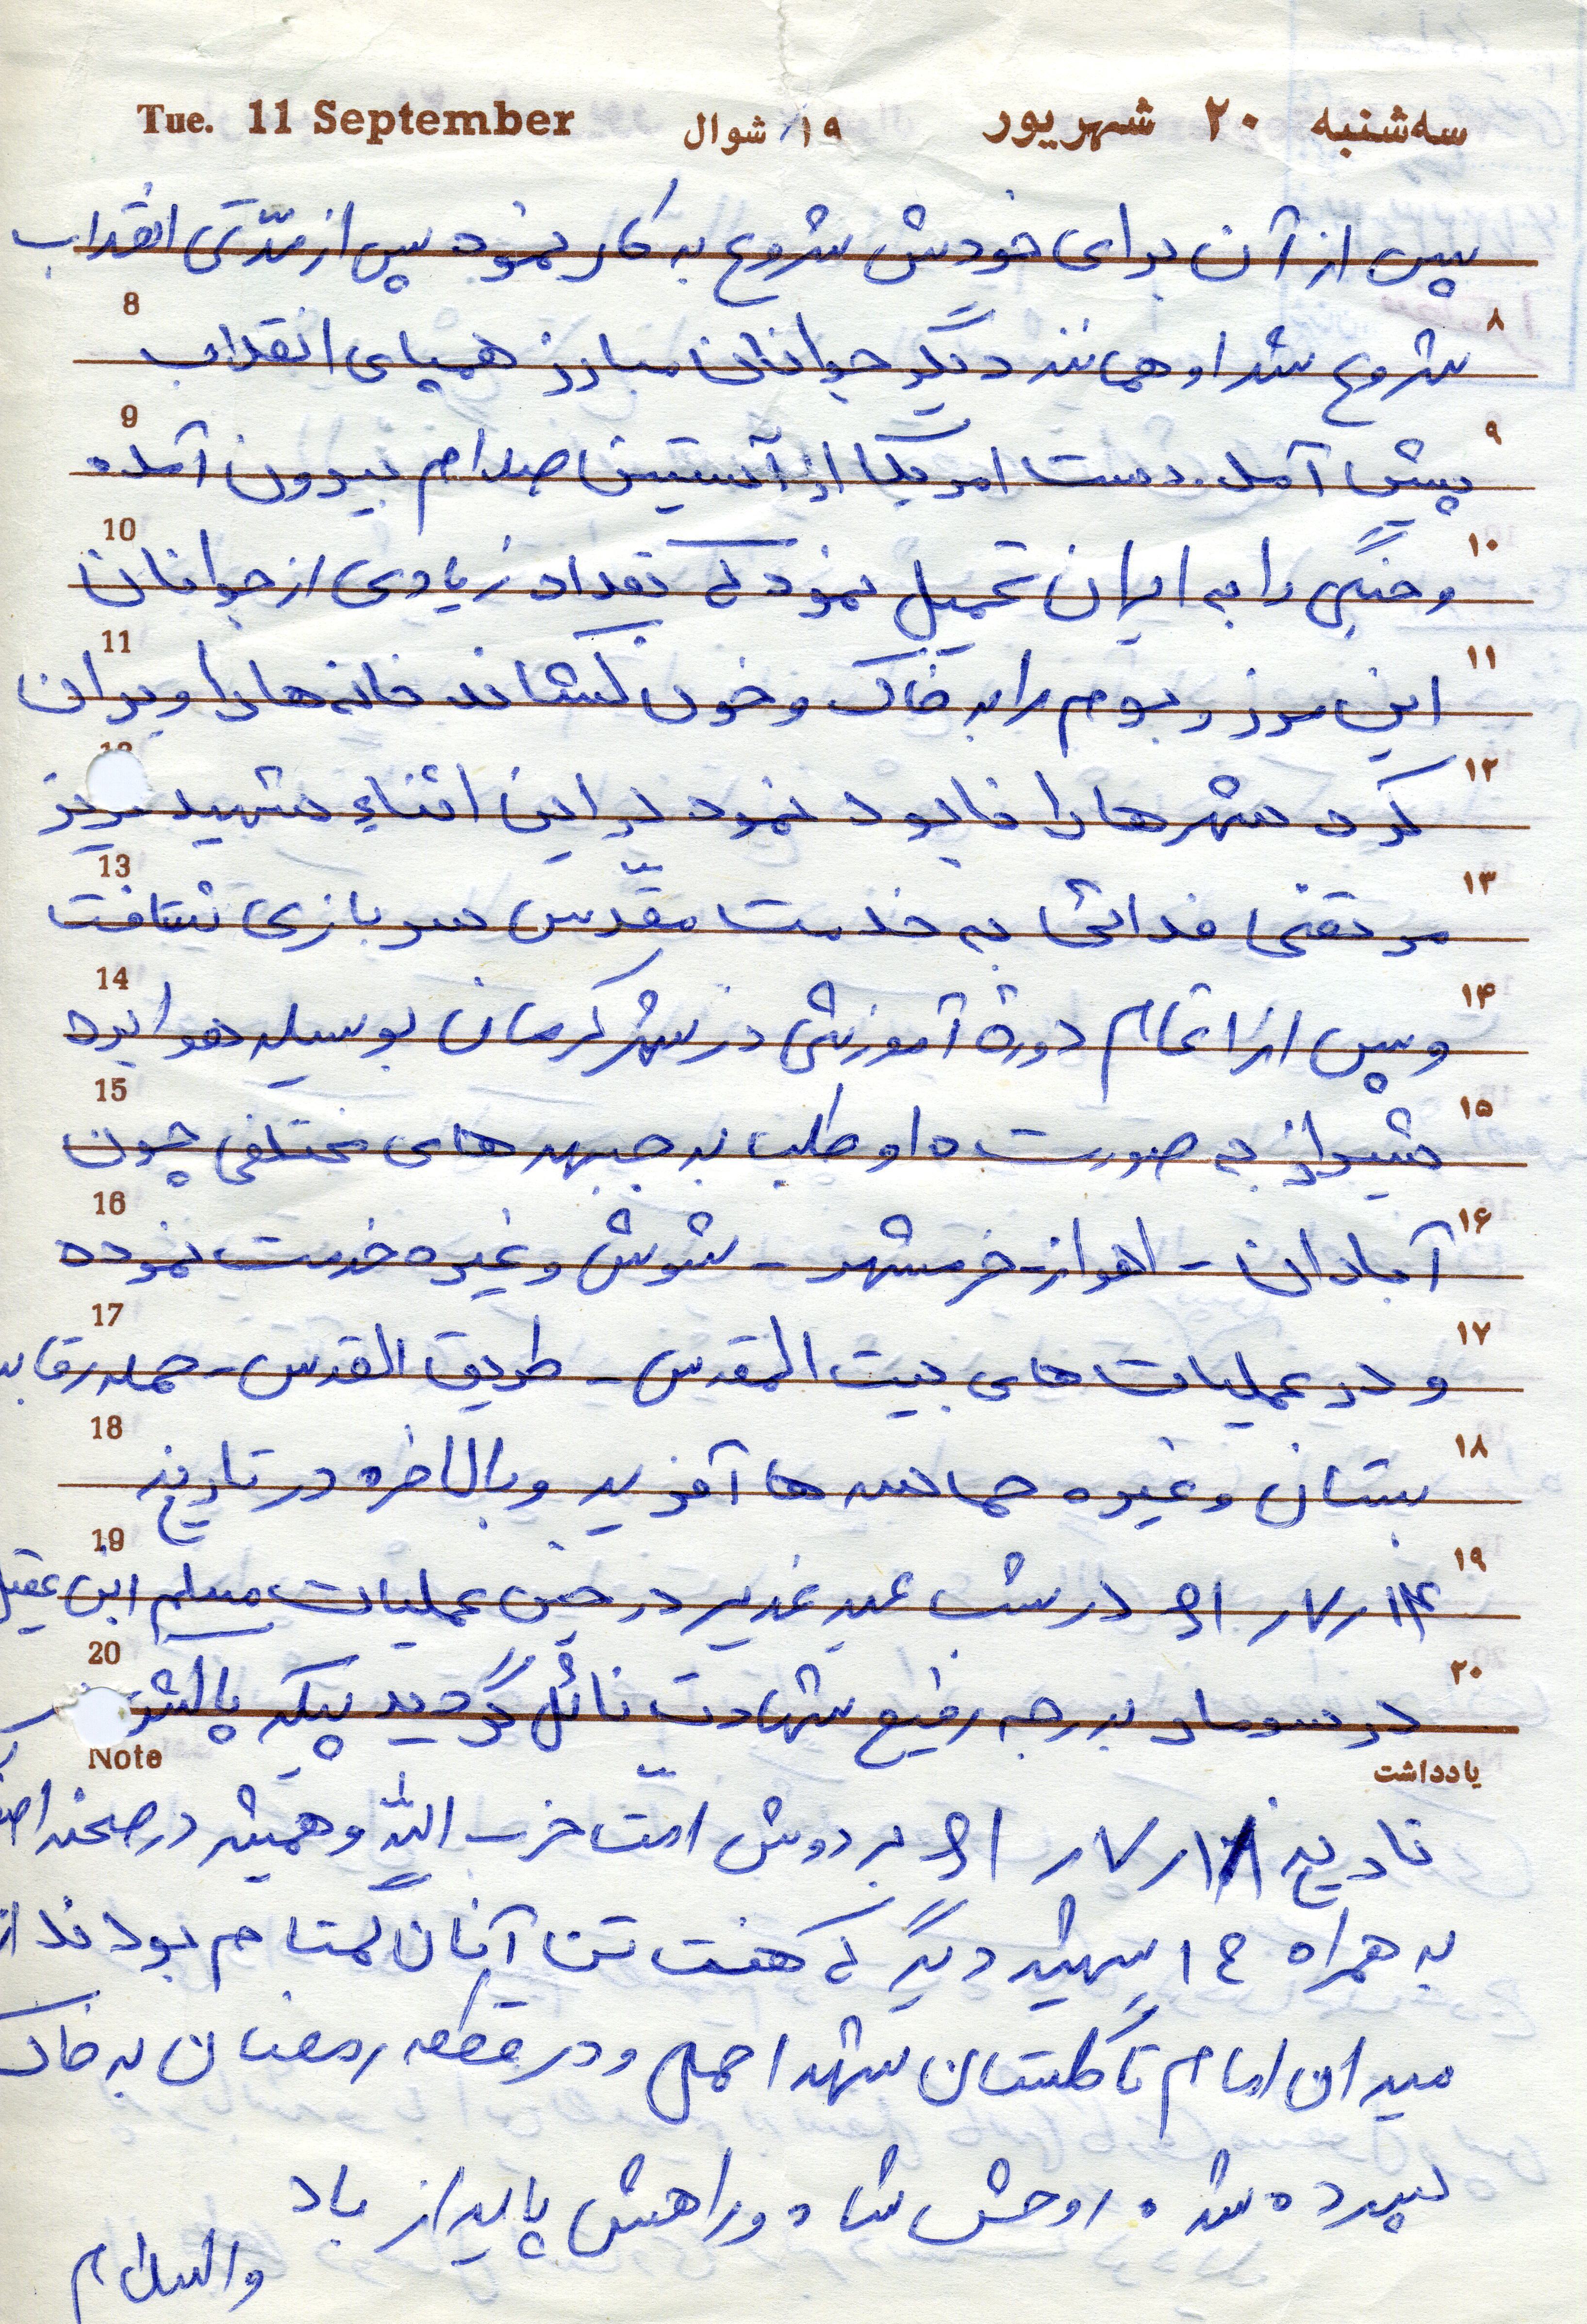 سه‌شنبه ۲۰ شهریور ۱۹ شوال Tue. 11 September
سپس از آن برای خودش شروع به کار نمود پس از مدّتی انقلاب
۸ شروع شد او همانند دیگر جوانان مبارز همپای انقلاب 8
۹ پیش آمد. دست امریکا از آستین صدام بیرون آمده 9
۱۰ و جنگی را به ایران تحمیل نمود که تعداد زیادی از جوانان 10
۱۱ این مرز و بوم را به خاک و خون کشاند خانه ها را ویران 11
۱۲ کرد شهرها را نابود نمود در این اثناء شهید عزیز
۱۳ مرتضی فدائی به خدمت مقدّس سربازی شتافت 13
۱۴ و پس از اتمام دورۀ آموزشی در شهر کرمان بوسیله هوابرد 14
۱۵ شیراز به صورت داوطلب به جبهه های مختلفی چون 15
۱۶ آبادان - اهواز - خرمشهر - شوش و غیره خدمت نموده 16
۱۷ و در عملیات های بیت المقدس - طریق القدس - حمله رقابیه 17
۱۸ بستان و غیره حماسه ها آفرید و بالاخره در تاریخ 18
۱۹ ۱۴ر۷ر۶۱ در شب عید غدیر در حین عملیات مسلم ابن عقیل 19
۲۰ در سومار به درجه رفیع شهادت نائل گردید پیکر پاکش در 20
یادداشت Note
تاریخ ۱۸ر۷ر۶۱ بر دوش امّت حزب اللّه و همیشه در صحنه
به همراه ۱۴ شهید دیگر که هفت تن آنان گمنام بودند از
میدان امام تا گلستان شهدا حمل و در قطعه رمضان به خاک
سپرده شد. روحش شاد و راهش پایدار باد
والسلام